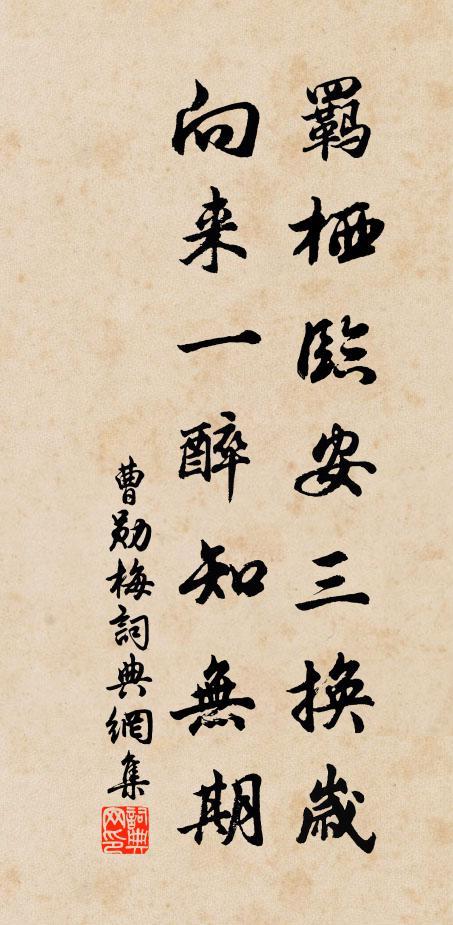 羈栖臨安三換歲
向来一醉知無期
曹勛梅詞典網集
詞典网印